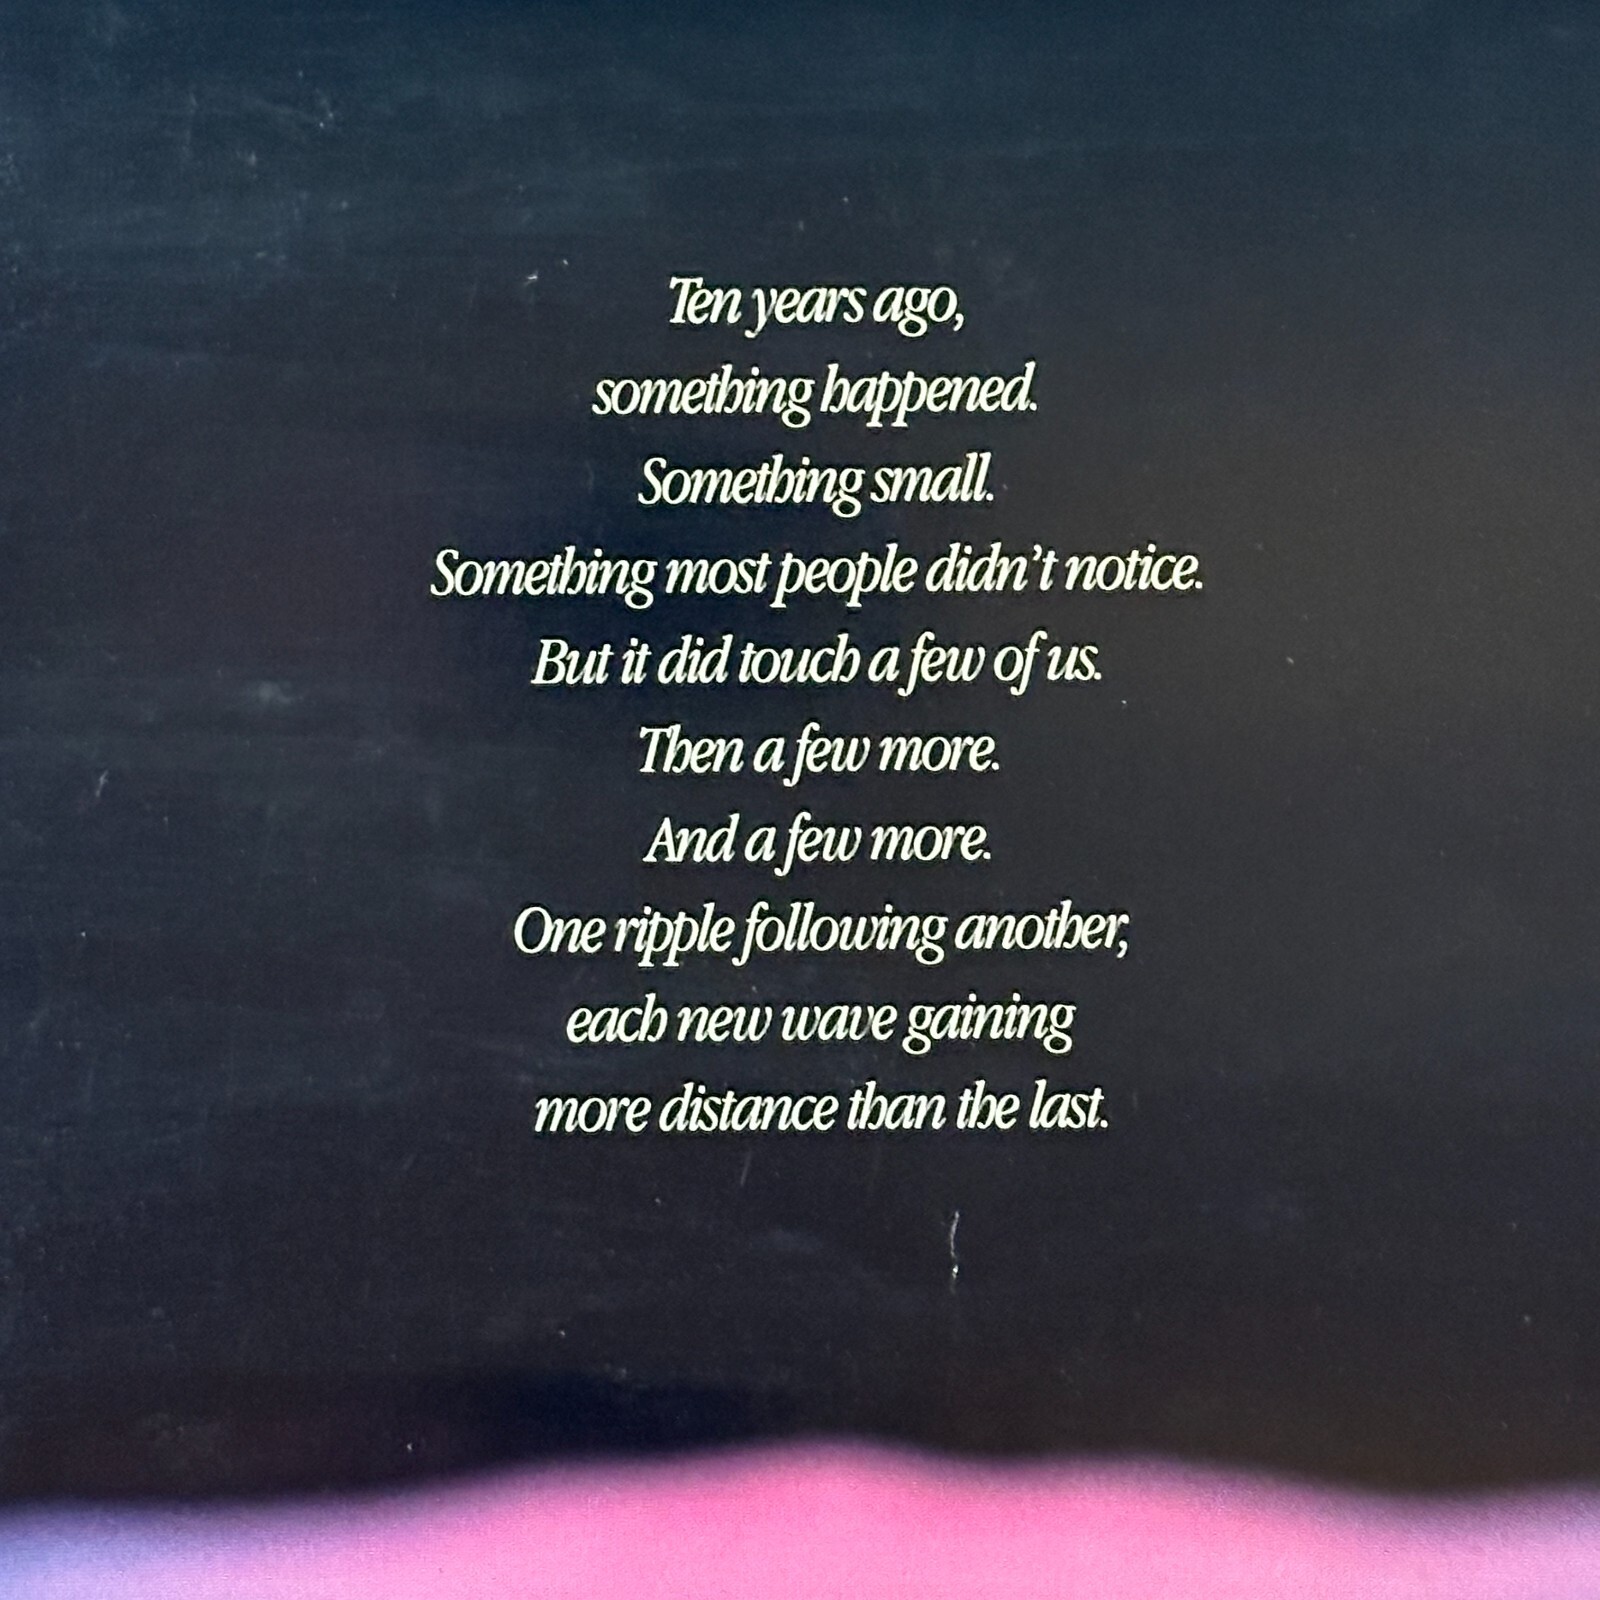 Ten years ago,
something happened.
Something small.
Something most people didn't notice.
But it did touch a few of us.
Then a few more.
And a few more.
One ripple following another,
each new wave gaining
more distance than the last.